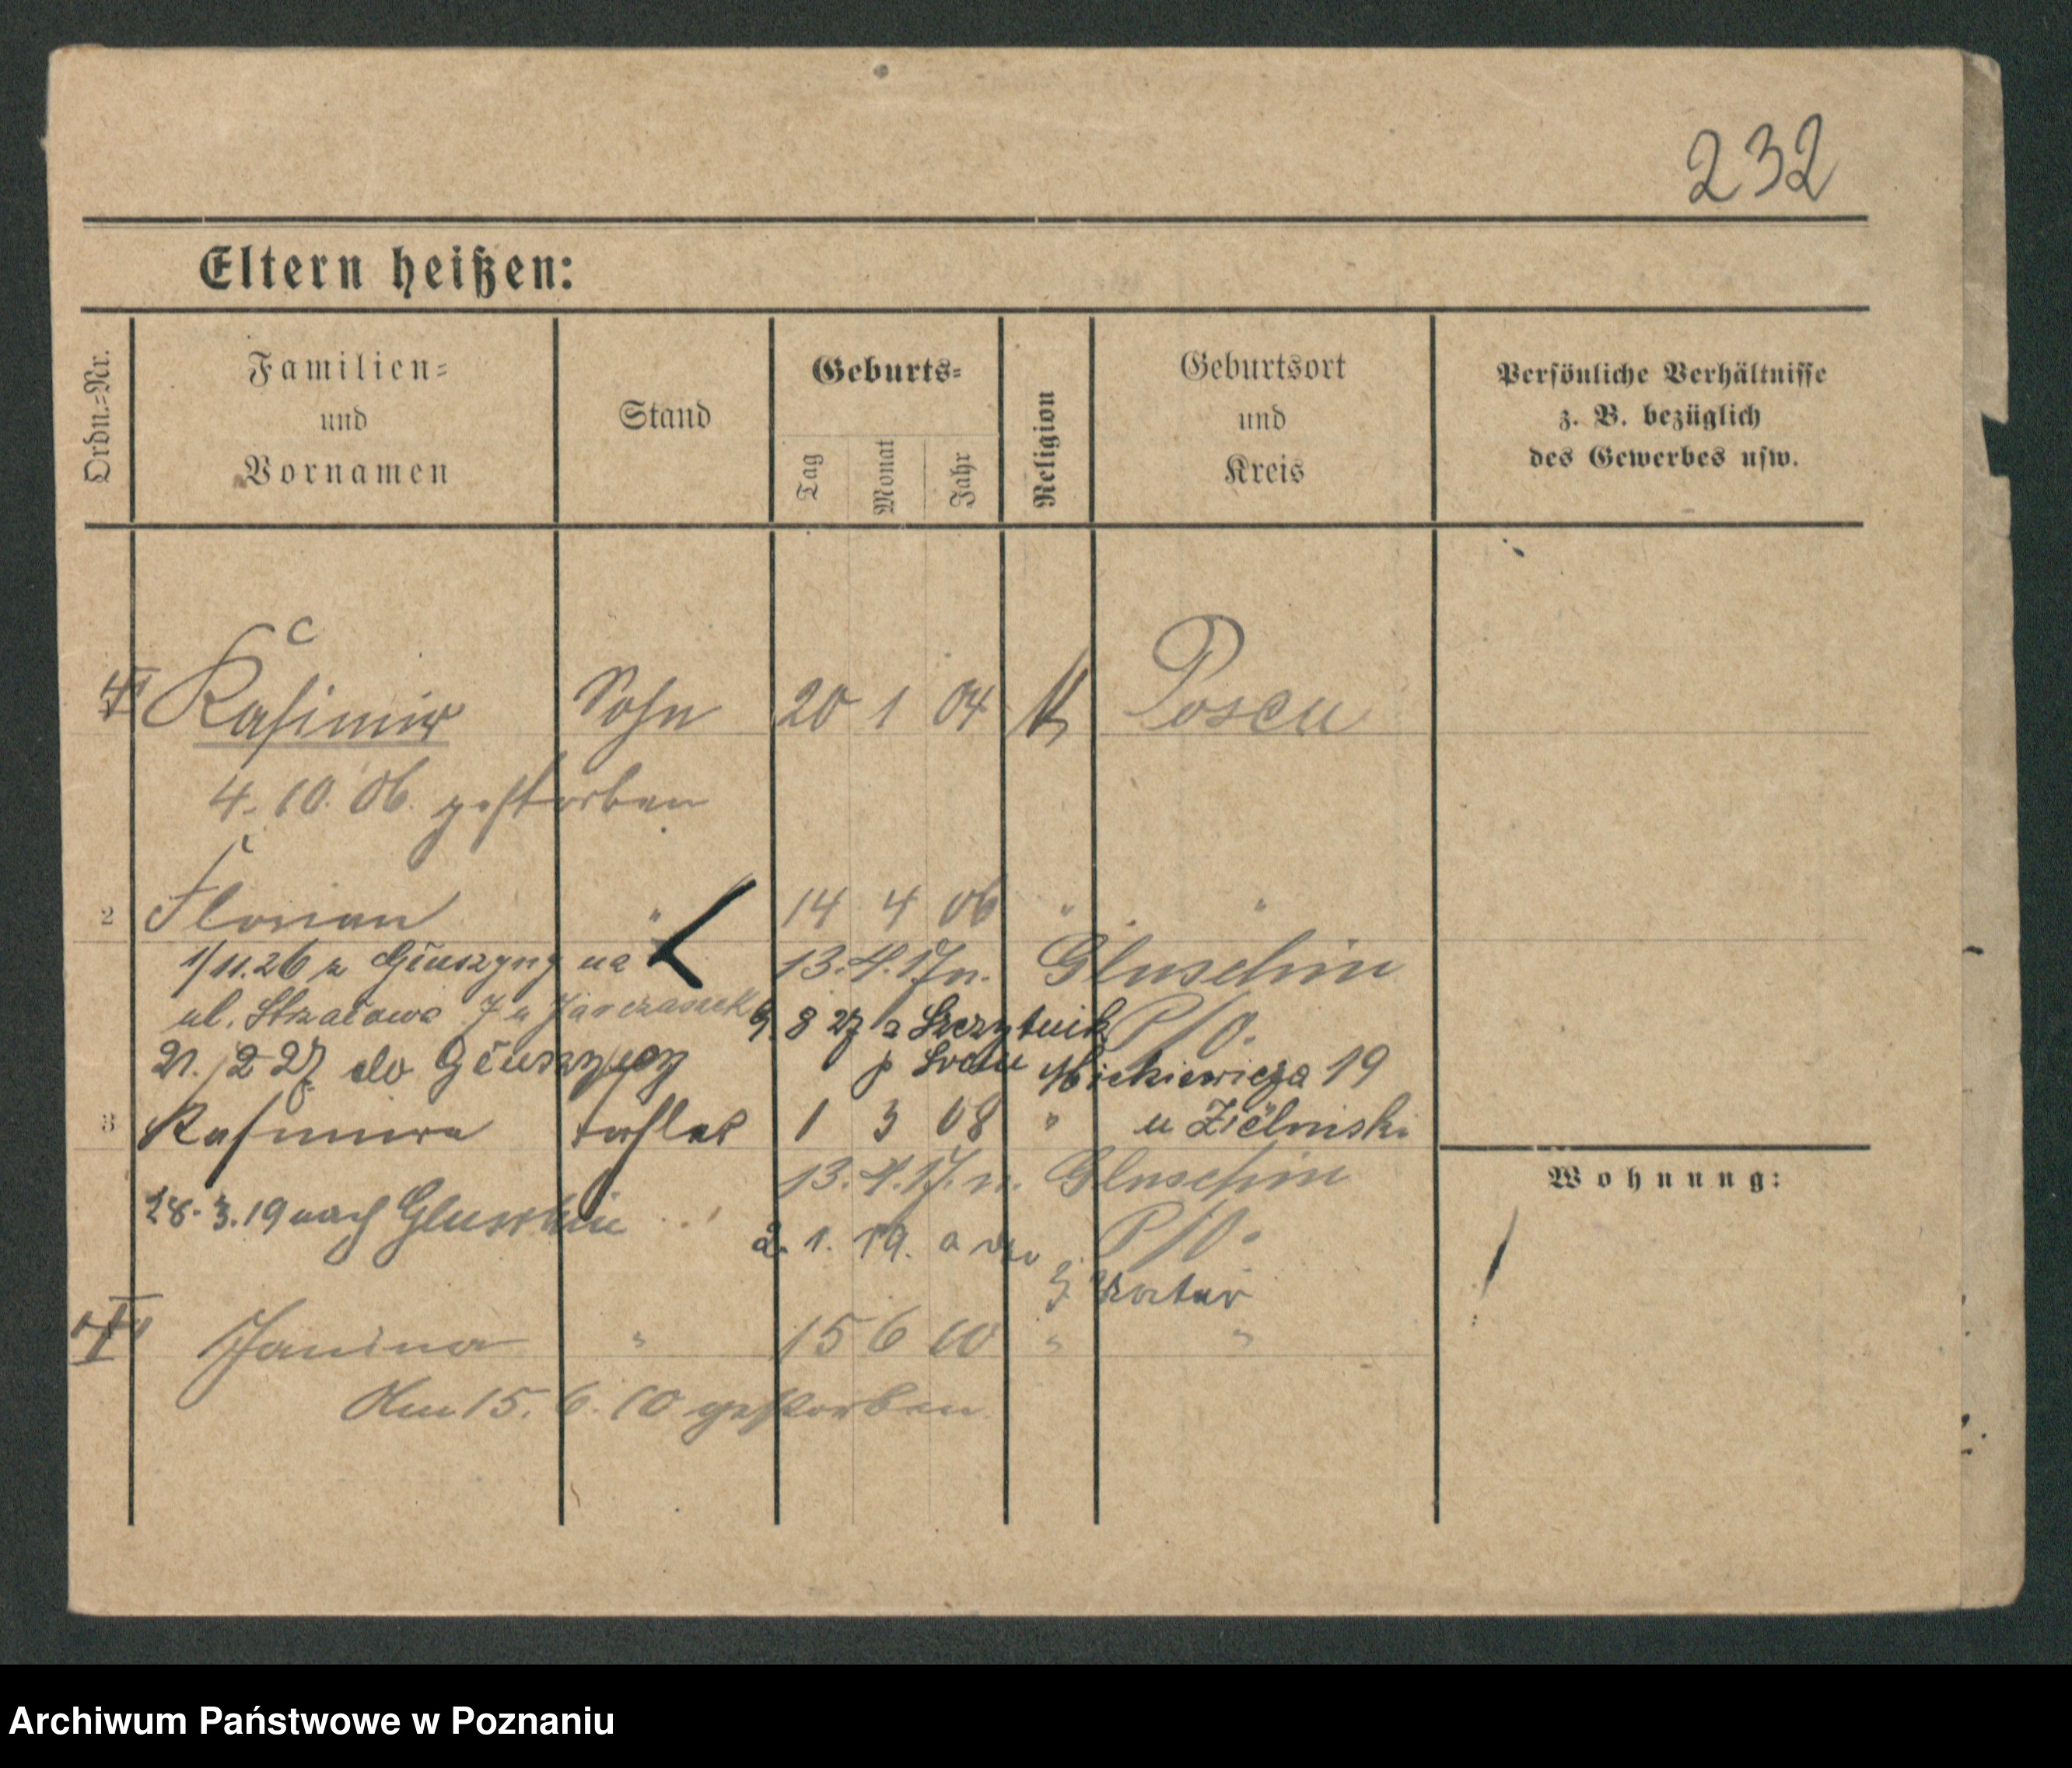 232
Eltern heißen:
Ordn.=Nr.
Familien=
und
Vornamen
Stand
Geburts=
Tag
Monat
Jahr
Religion
Geburtsort
und
Kreis
Persönliche Verhältnisse
z. B. bezüglich
des Gewerbes usw.
Kasimir Sohn 20 1 04 K Posen
4. 10. 06. gestorben
2 Florian " 14 4 06 " "
1/11.26 z Głuszyny na 13.4.17 n. Gluschin
ul. Strzałowa 7 u 9. 8 27 z Szczytnik P/O.
21. 12 27 do Głuszyny p Środa Mickiewicza 19
3 Kasimira 1 3 08 " u Zielinski
13.4.17. n. Gluschin
28. 3. 19 nach Gluschin P/O.
2. 1. 19. a
Wohnung:
Janina " 15 6 10 " "
Am 15. 6. 10 gestorben
Archiwum Państwowe w Poznaniu